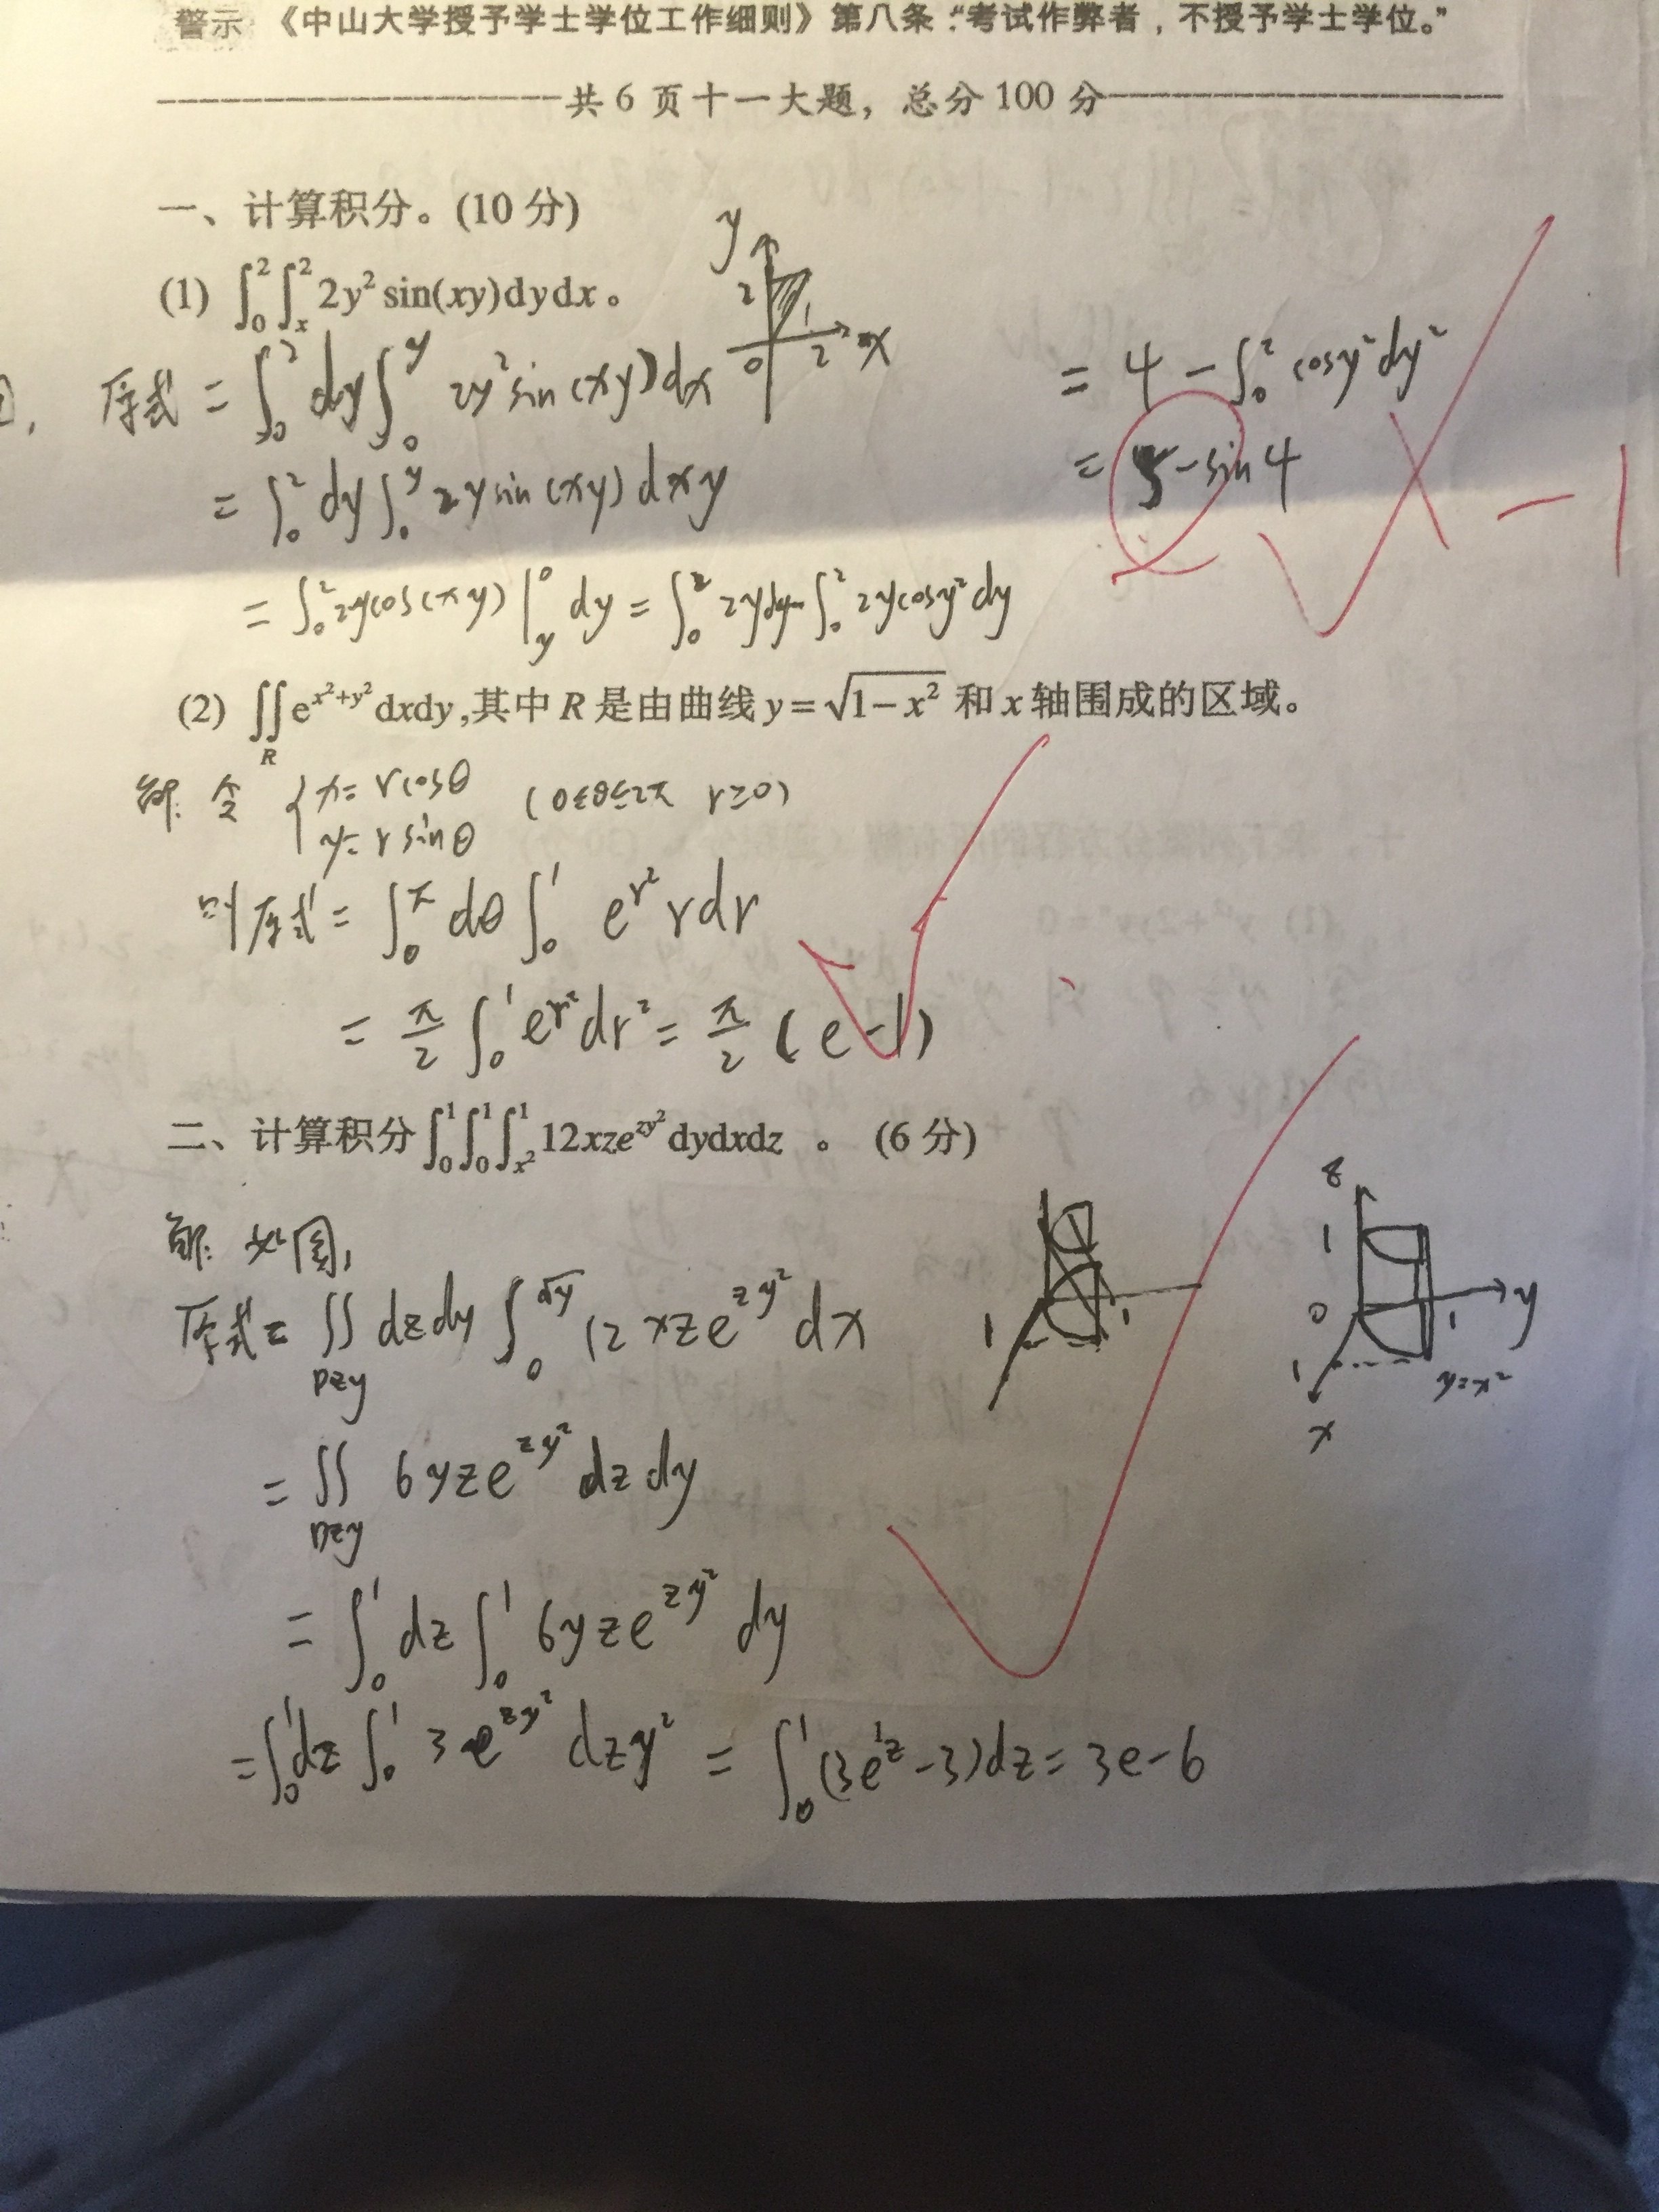 警示 《中山大学授予学士学位工作细则》第八条:“考试作弊者,不授予学士学位。”
共 6 页十一大题，总分 100 分
一、计算积分。(10 分)
(1) ∫₀² ∫ₓ² 2y² sin(xy)dydx。
y
2
1
0 2 x
原式 = ∫₀² dy ∫₀^y 2y² sin(xy) dx
= ∫₀² dy ∫₀^y 2y sin(xy) dxy
= ∫₀² 2y cos(xy) |_y^0 dy = ∫₀² 2y dy - ∫₀² 2y cos y² dy
= 4 - ∫₀² cos y² dy²
= 5 - sin 4
× -1
(2) ∬_R e^{x²+y²} dxdy,其中 R 是由曲线 y = √(1-x²) 和 x 轴围成的区域。
解: 令 { x = r cosθ
y = r sinθ (0≤θ≤2π r≥0)
则原式 = ∫₀^π dθ ∫₀¹ e^{r²} r dr
= π/2 ∫₀¹ e^{r²} dr² = π/2 (e-1)
二、计算积分 ∫₀¹ ∫₀¹ ∫_{x²}¹ 12xze^{zy²} dydxdz 。 (6 分)
解: 如图,
原式 = ∬_{Dzy} dzdy ∫₀^{√y} 12xze^{zy²} dx
1 1
z
1
0 1 y
1 y=x²
x
= ∬_{Dzy} 6yze^{zy²} dzdy
= ∫₀¹ dz ∫₀¹ 6yze^{zy²} dy
= ∫₀¹ dz ∫₀¹ 3e^{zy²} dzy² = ∫₀¹ (3e^z - 3)dz = 3e-6